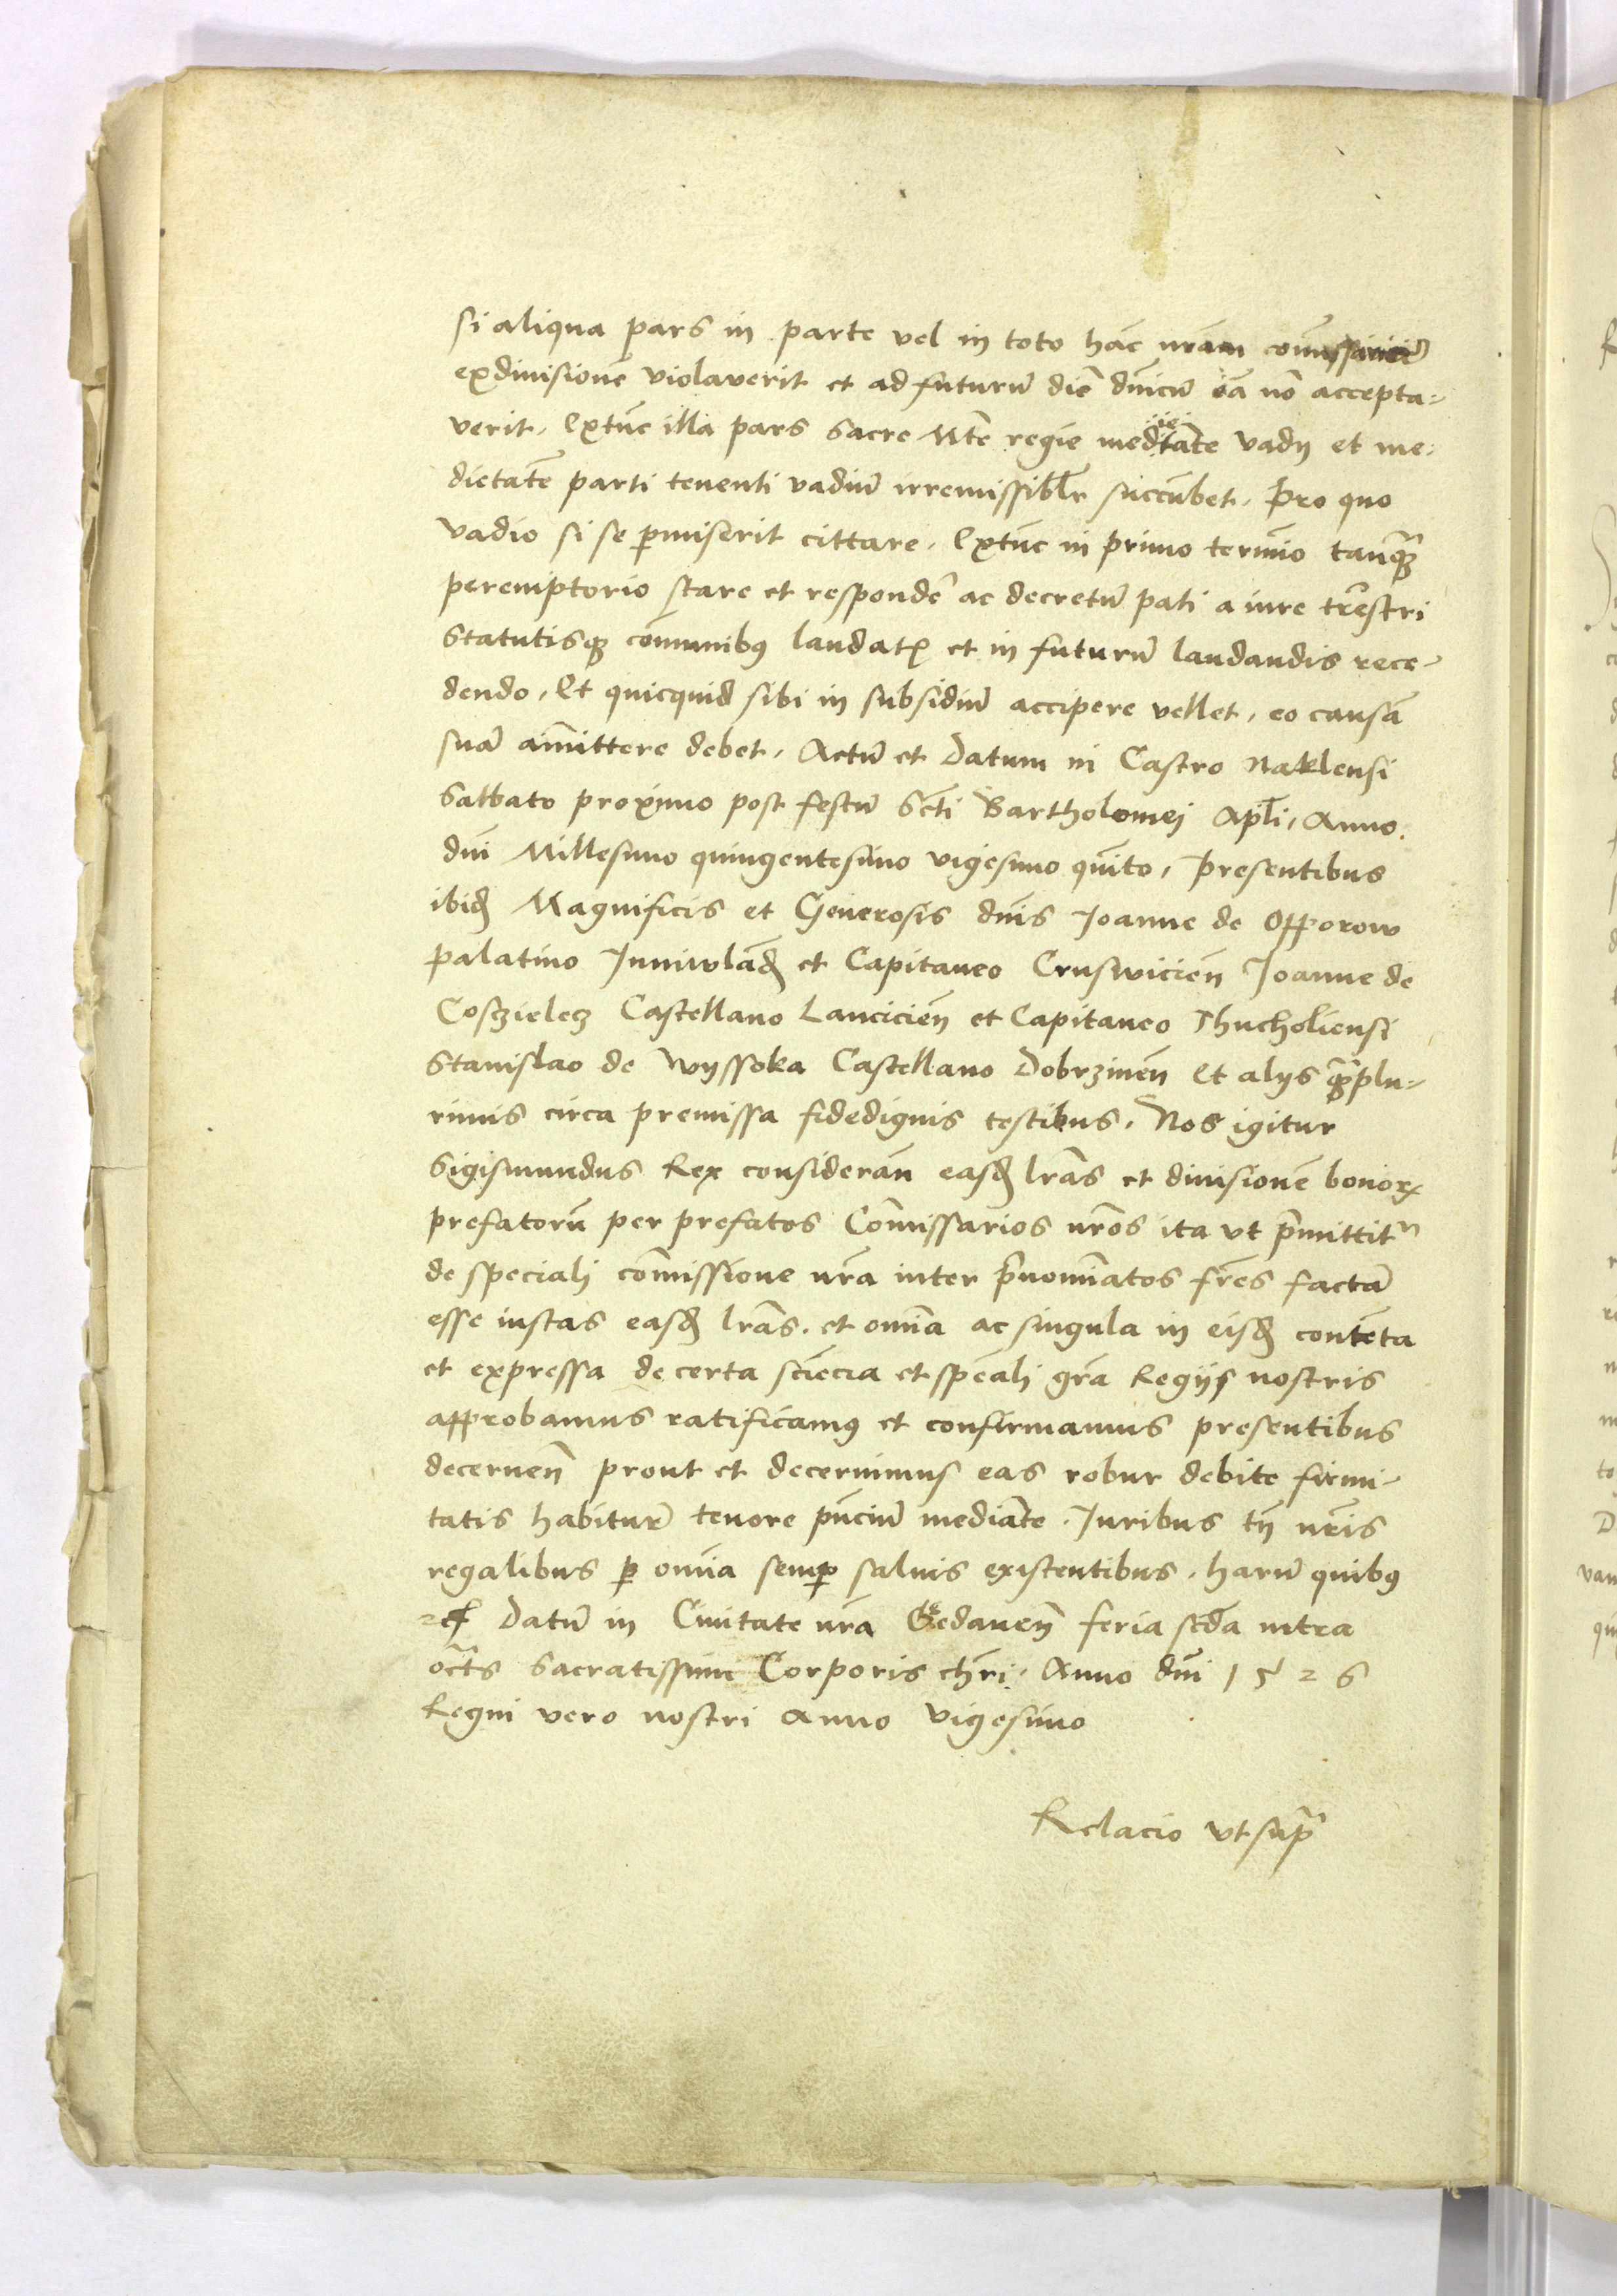 si aliqua pars in parte vel in toto hāc nrām
exdiuisionē violaverit et ad futurū diē dnīcū eā nō accepta-
verit, Extūc illa pars Sacre Mte regie medietāte vadij et me-
dietatē parti tenenti vadiū irremissiblr succūbet, Pro quo
vadio si se pmiserit cittare, Extūc in primo termīo tanq̄
peremptorio stare et respondē ac decretū pati a iure trestri
statutisq comunibus laudatis et in futurū laudandis rece-
dendo, Et quicquid sibi in subsidiū accipere vellet, eo causā
suā amittere debet, Actū et Datum in Castro Naklensi
Sabbato proximo post festū Scti Bartholomej Apli, Anno
dni Millesimo quingentesimo vigesimo quīto, Presentibus
ibid Magnificis et Generosis dnis Joanne de Opporow
Palatino Juniwlad et Capitaneo Cruswicien Joanne de
Cosczielecz Castellano Lancicien et Capitaneo Thucholiensi
Stanislao de Wyssoka Castellano Dobrzinen Et alijs q̄plu-
rimis circa premissa fidedignis testibus, Nos igitur
Sigismundus Rex consideran easd lras et diuisionē bonor
prefatorū per prefatos Comissarios nros ita vt pmittitr
de speciali comissione nra inter pnominatos fres factā
esse iustas easd lras, et omia ac singula in eisd contēta
et expressa de certa sciēcia et speali gra Regijs nostris
approbamus ratificamus et confirmamus presentibus
decernen prout et decernimus eas robur debite firmi-
tatis habiturū tenore pnciū mediāte, Juribus tn nris
regalibus p omia semp saluis existentibus, harū quibus
Datū in Ciuitate nra Gedanen feria scda intra
octs Sacratissimi Corporis chri, Anno dni 1526
Regni vero nostri Anno vigesimo
Relacio vt supra